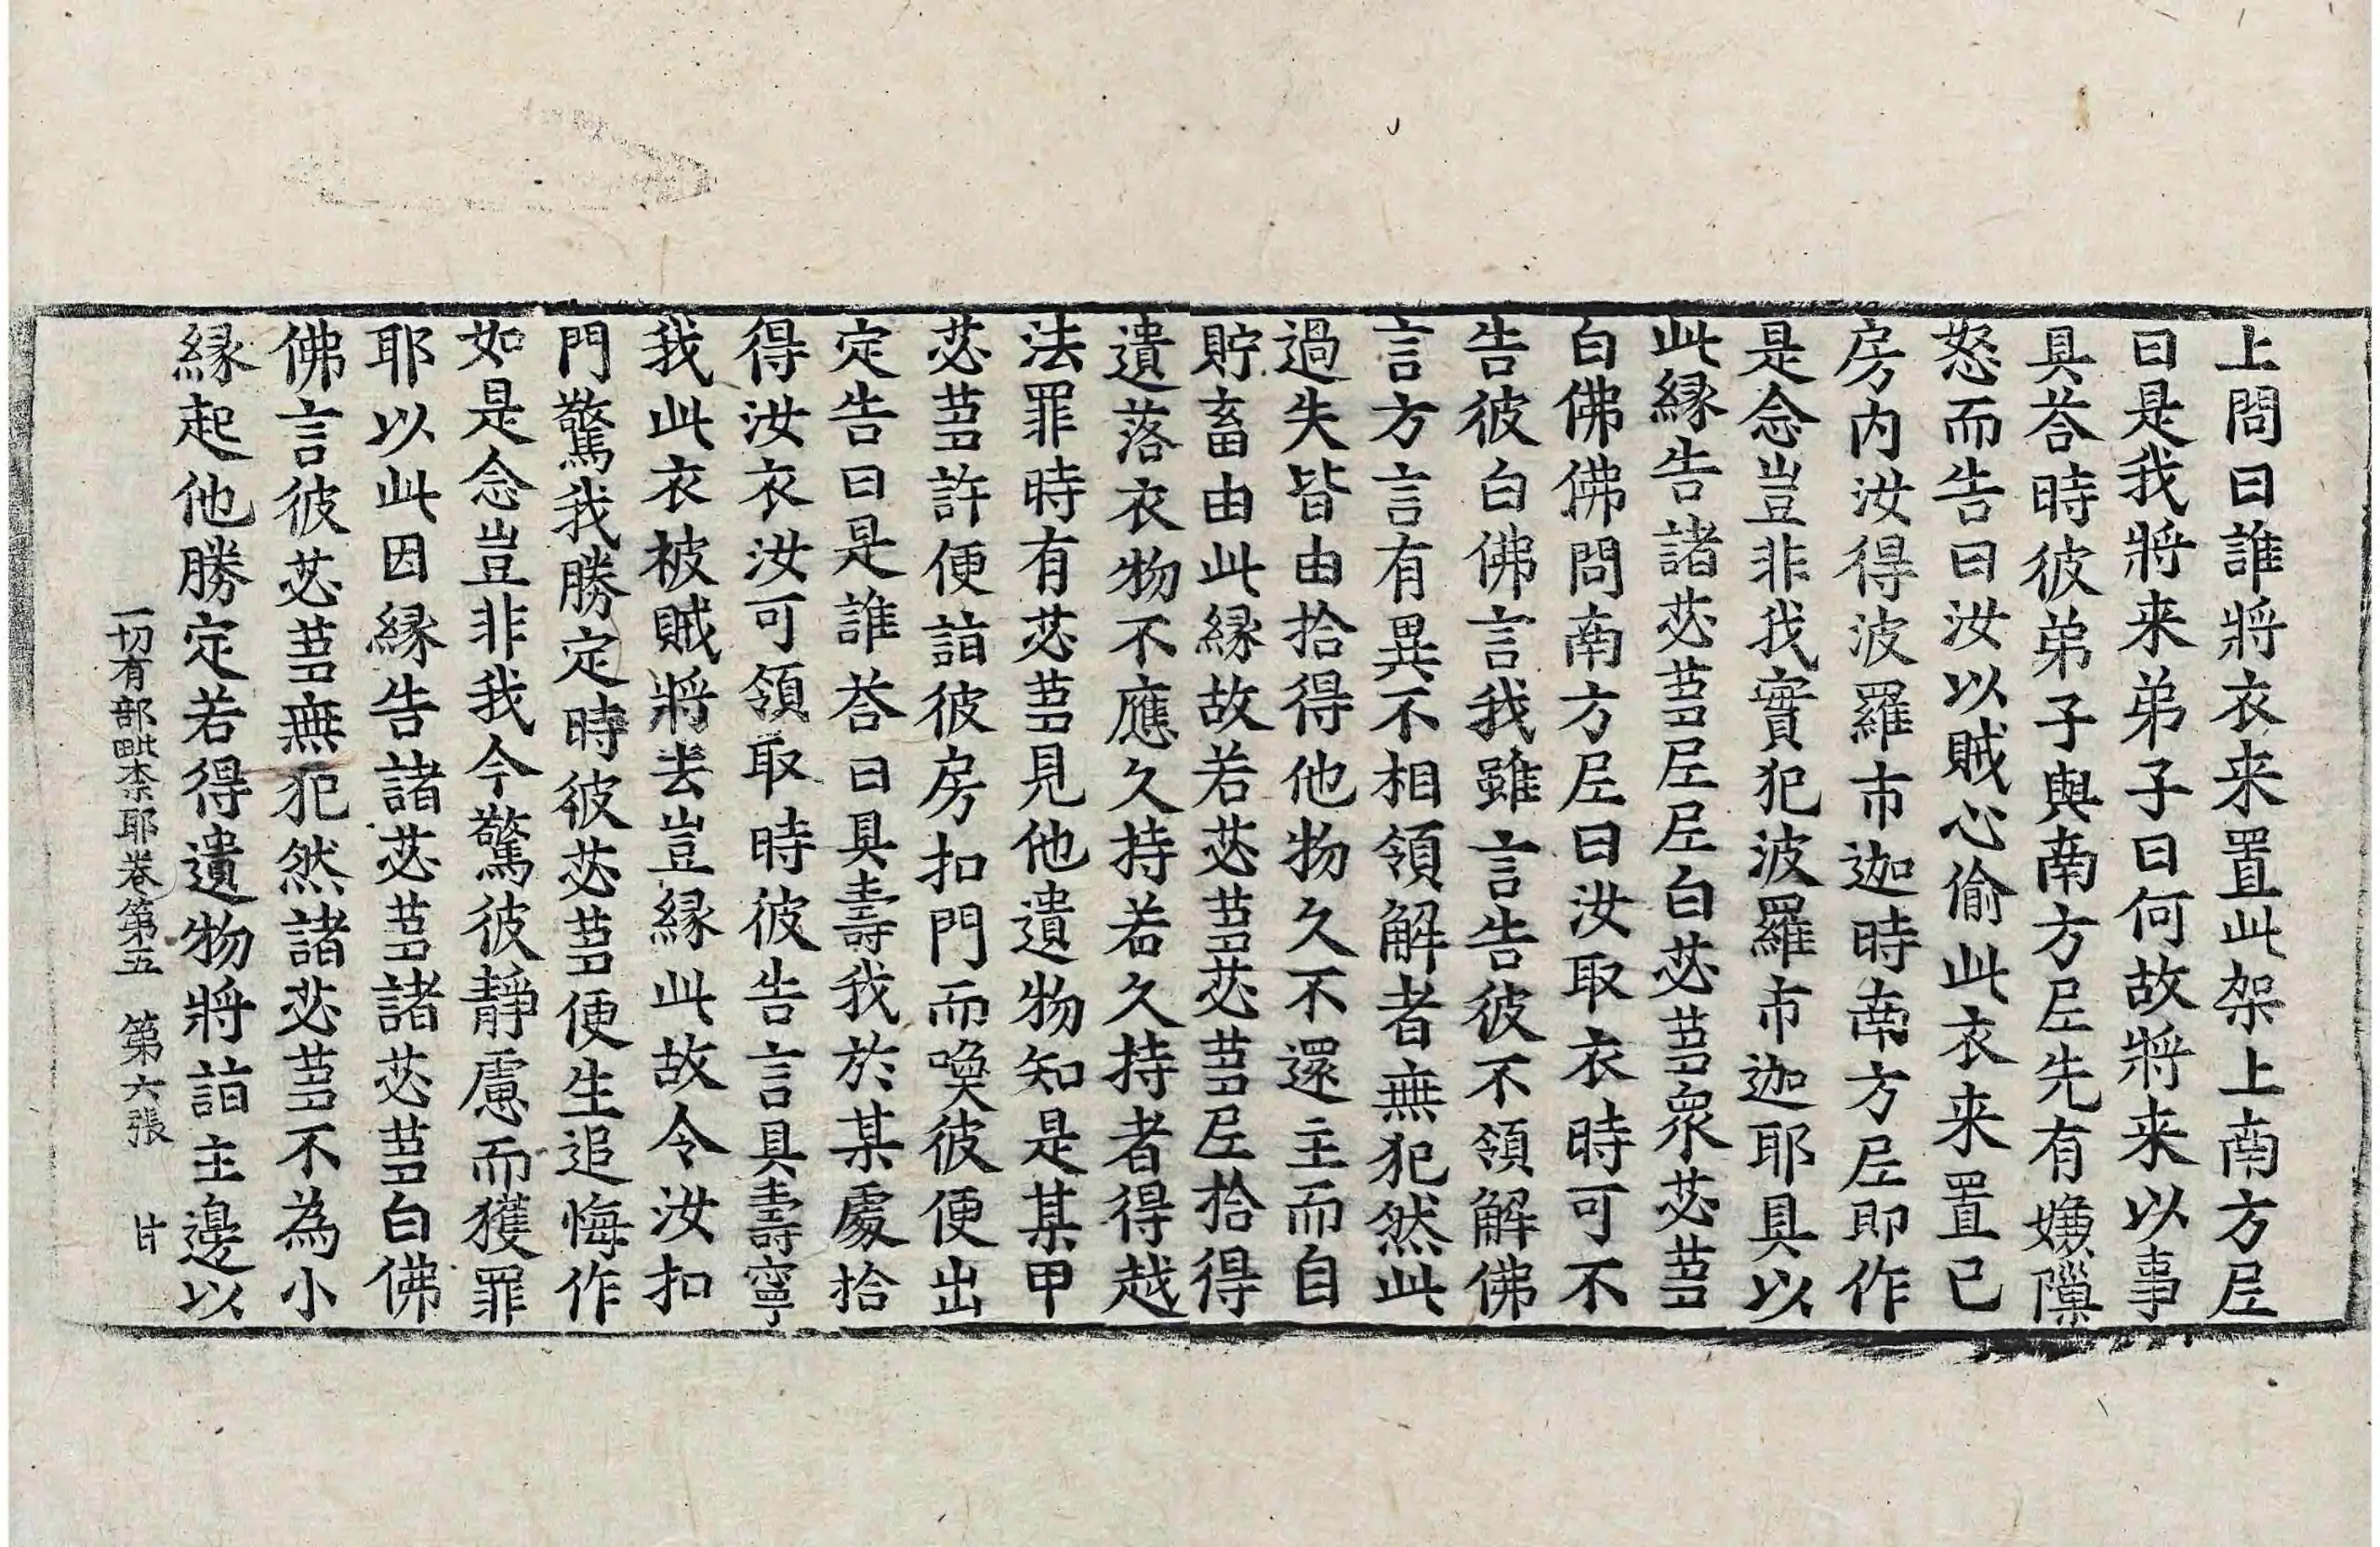 上問曰誰將衣来置此架上南方𡰱
曰是我將来弟子曰何故將来以事
具荅時彼弟子與南方𡰱先有嫌隟
怒而告曰汝以賊心偷此衣来置已
房内汝得波羅市迦時南方𡰱即作
是念豈非我實犯波羅市迦耶具以
此縁告諸苾蒭𡰱𡰱白苾蒭衆苾蒭
白佛佛問南方𡰱曰汝取衣時可不
告彼白佛言我雖言告彼不領解佛
言方言有異不相領解者無犯然此
過失皆由拾得他物久不還主而自
貯畜由此縁故若苾蒭苾蒭𡰱拾得
遺落衣物不應久持若久持者得越
法罪時有苾蒭見他遺物知是某甲
苾蒭許便詣彼房扣門而喚彼便出
定告曰是誰荅曰具壽我於某處拾
得汝衣汝可領取時彼告言具壽寧
我此衣被賊將去豈縁此故令汝扣
門驚我勝定時彼苾蒭便生追悔作
如是念豈非我今驚彼靜慮而獲罪
耶以此因縁告諸苾蒭諸苾蒭白佛
佛言彼苾蒭無犯然諸苾蒭不為小
縁起他勝定若得遺物將詣主邊以
一切有部毗柰耶卷第五　第六張　甘